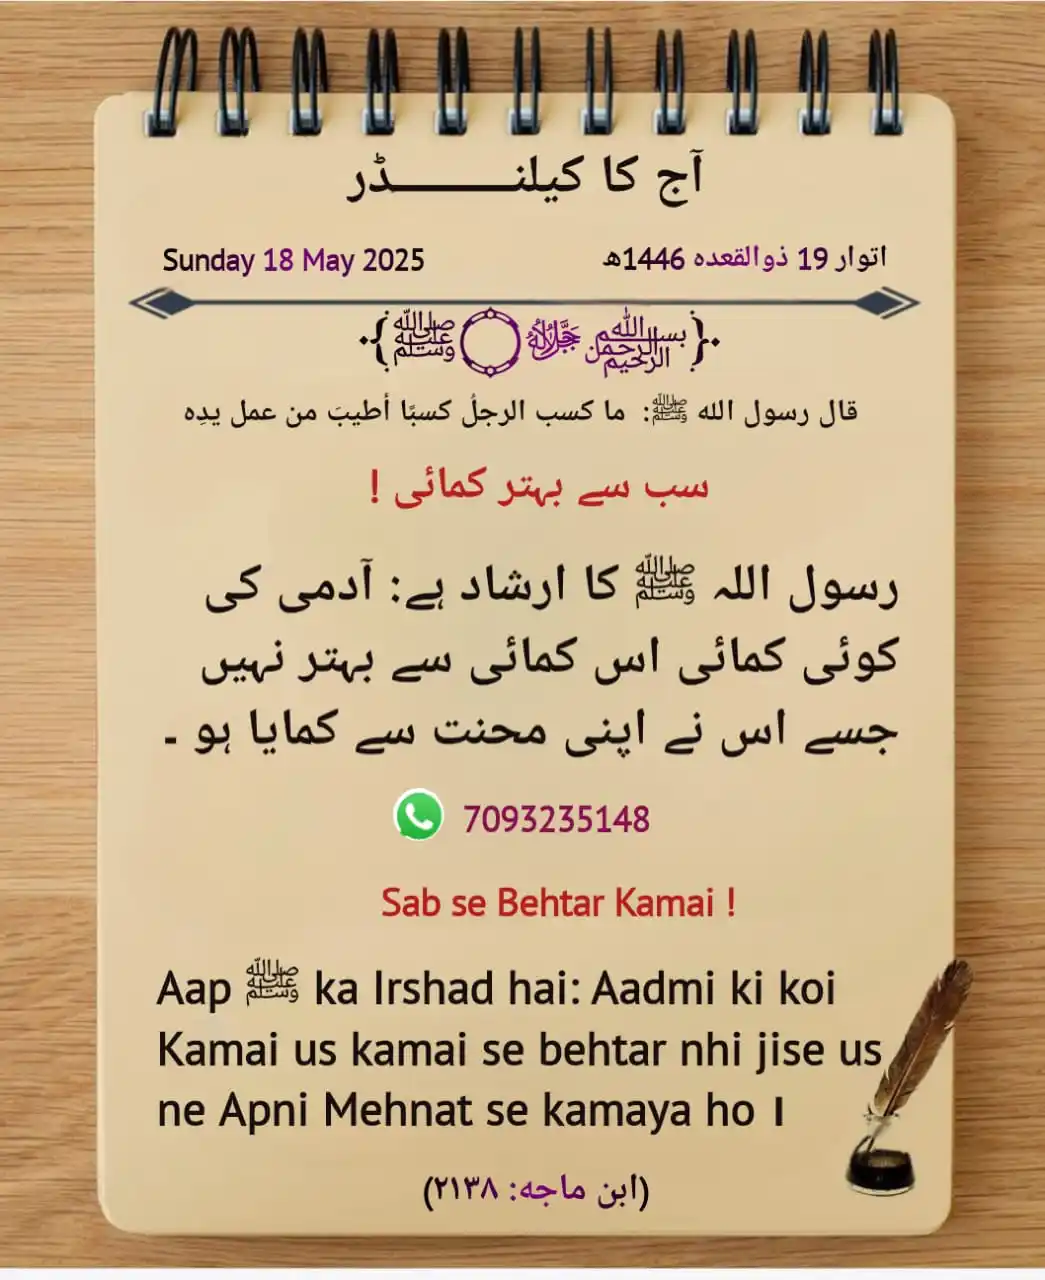 آج کا کیلنـــــــــڈر
Sunday 18 May 2025
اتوار 19 ذوالقعدہ 1446ھ
﴾﷽ ﷻ ۝ ﷺ﴿
قال رسول الله ﷺ: ما كسب الرجلُ كسبًا أطيبَ من عمل يدِه
سب سے بہتر کمائی !
رسول اللہ ﷺ کا ارشاد ہے: آدمی کی
کوئی کمائی اس کمائی سے بہتر نہیں
جسے اس نے اپنی محنت سے کمایا ہو ۔
7093235148
Sab se Behtar Kamai !
Aap ﷺ ka Irshad hai: Aadmi ki koi
Kamai us kamai se behtar nhi jise us
ne Apni Mehnat se kamaya ho ।
(ابن ماجه: ٢١٣٨)